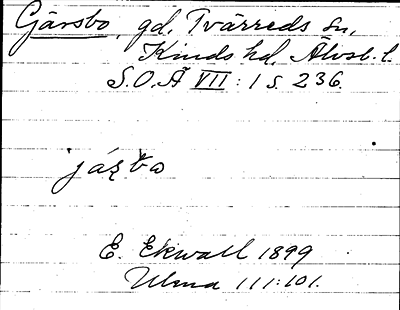 Gärsbo, gd, Tvärreds sn,
Kinds hd, Älvsb. l.
S.O.Ä VII : 1 s. 236.
E. Ekwall 1899
Ulma 111:101.